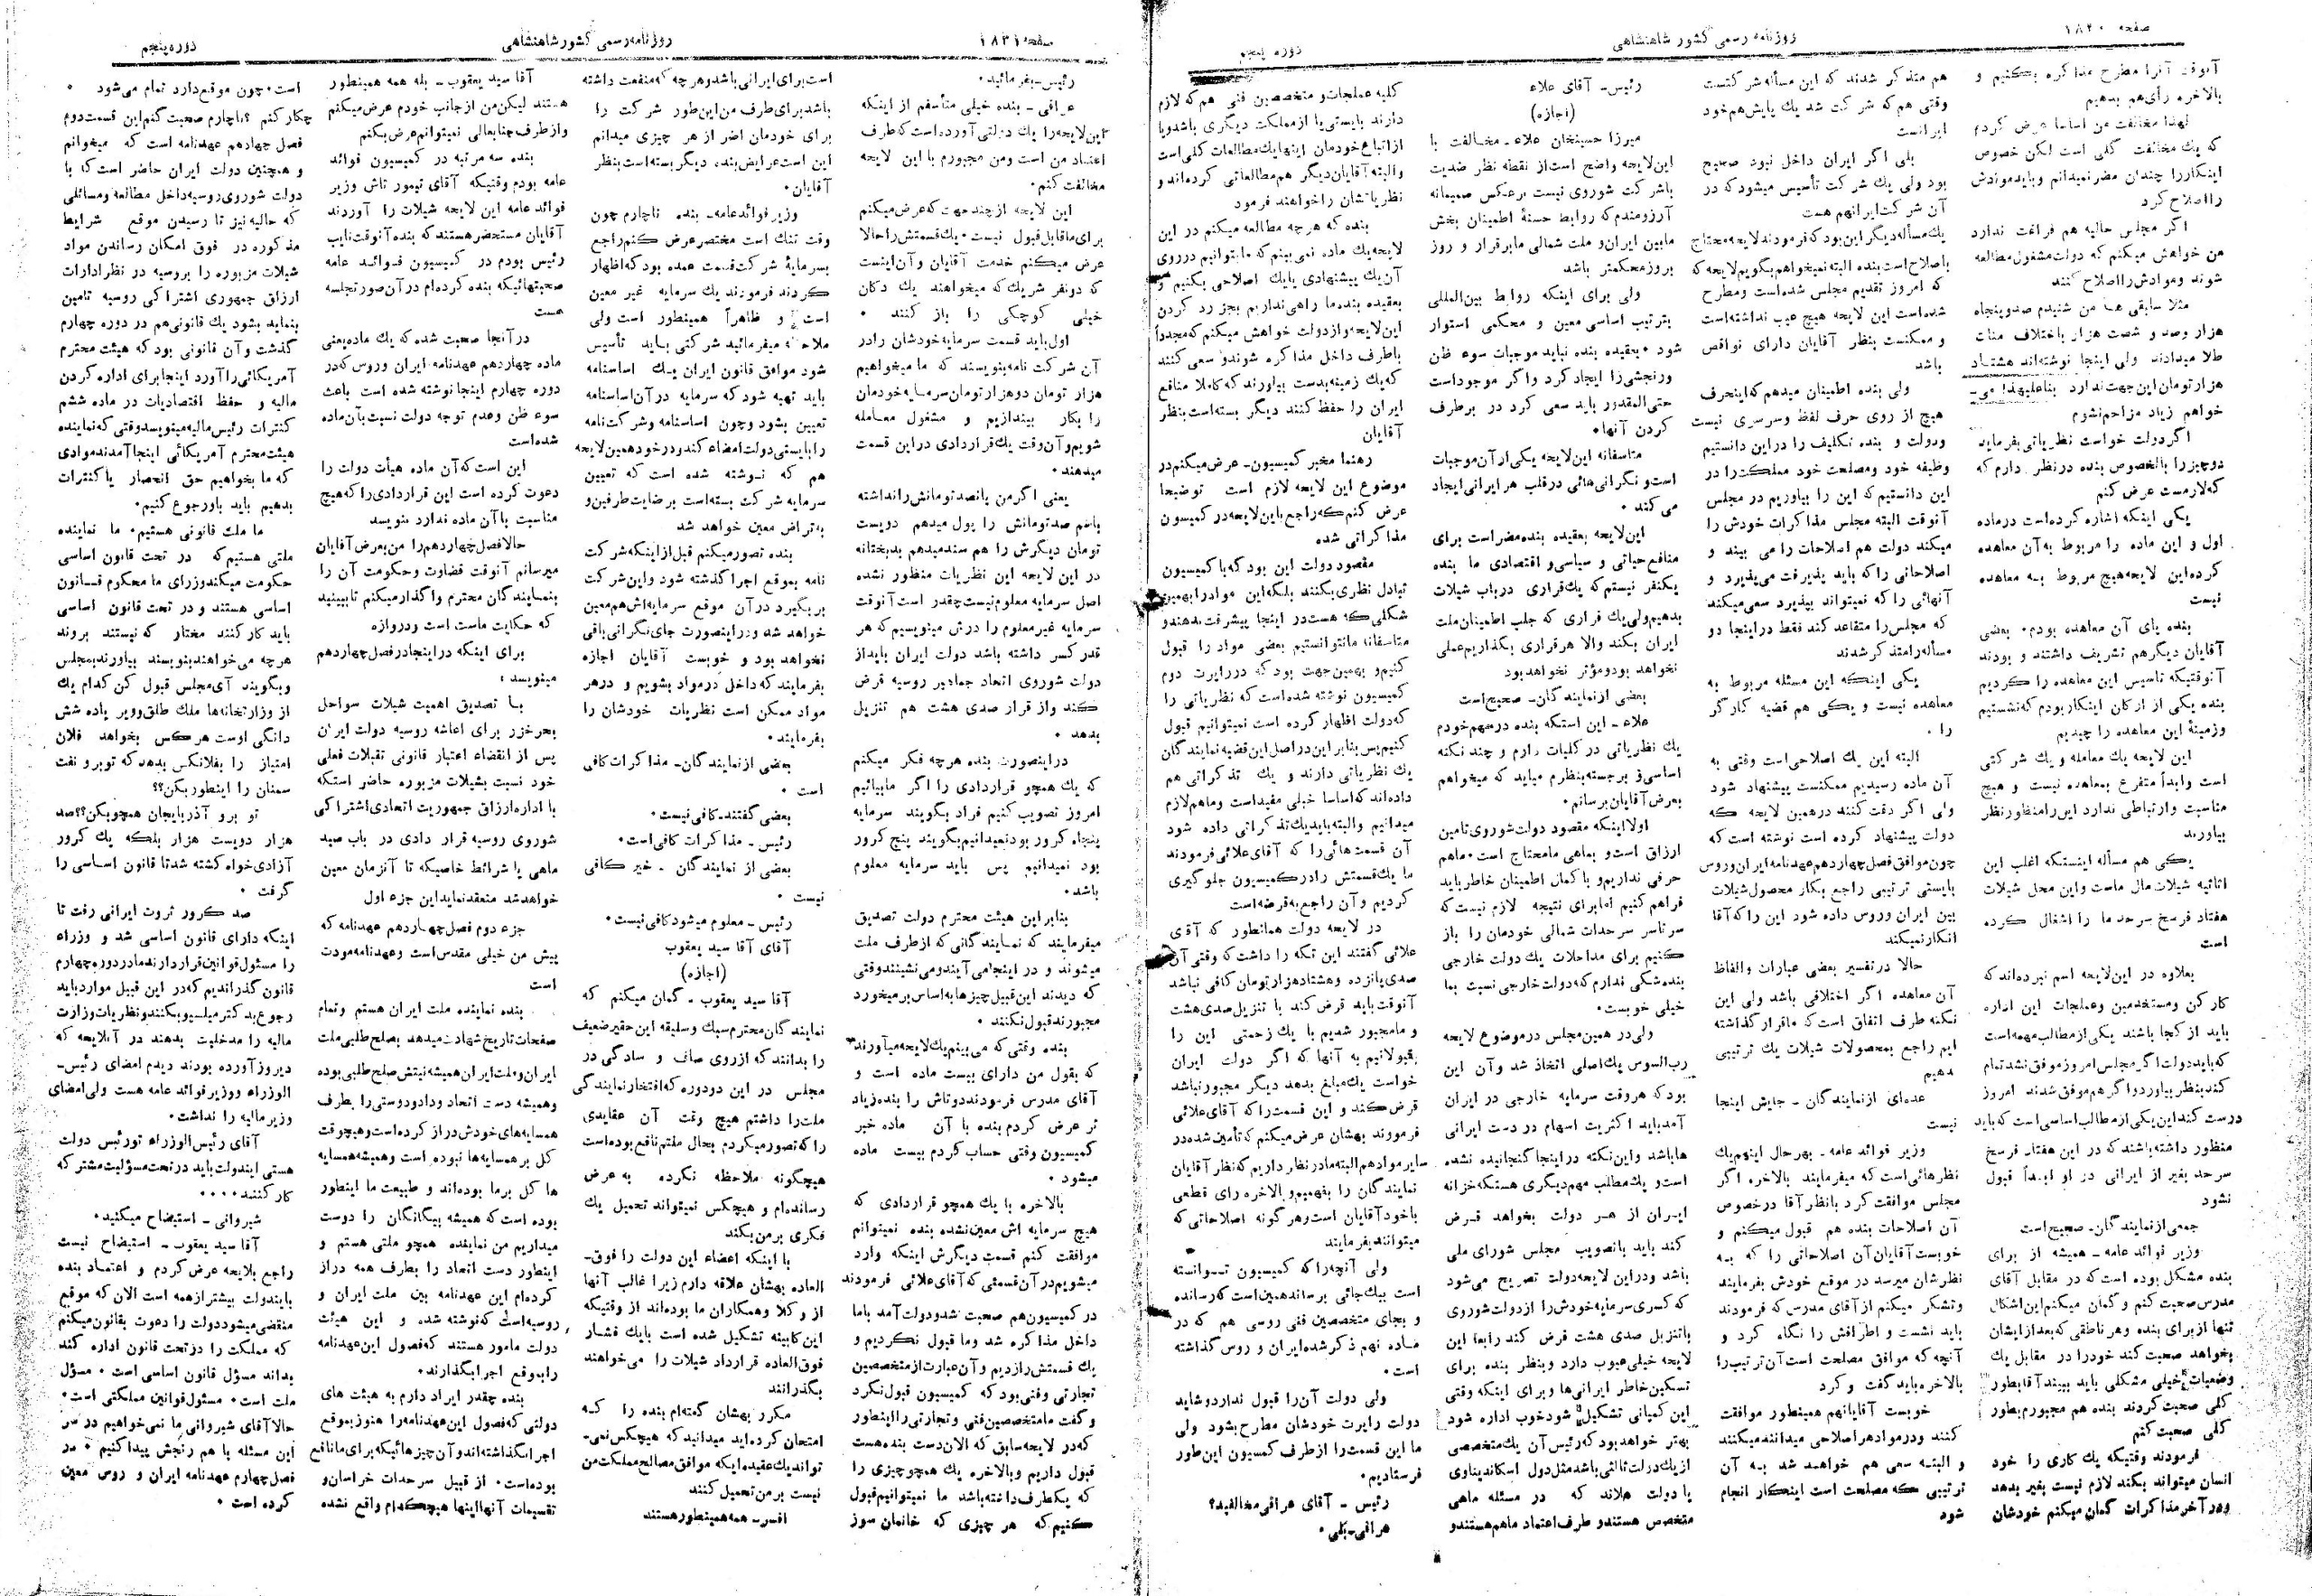 صفحه ۱۸۳۰
روزنامه رسمی کشور شاهنشاهی
دوره پنجم
آنوقت آنرا مطرح مذاکره بکنیم و
بالاخره رأی هم بدهیم
لهذا مخالفت من اساساً عرض کردم
که یك مخالفت کلی است لکن خصوص
اینکار را چندان مضر نمیدانم و باید موادش
را اصلاح کرد
اگر مجلس حالیه هم فراغت ندارد
من خواهش میکنم که دولت مشغول مطالعه
شوند و موادش را اصلاح کنند
مثلا سابقی ها من شنیدم صد و پنجاه
هزار و صد و شصت هزار باختلاف منات
طلا میدادند ولی اینجا نوشته‌اند هشتاد
هزار تومان این جهت ندارد بناعلیهذا نمی‌ـ
خواهم زیاد مزاحم نشوم
اگر دولت خواست نظریاتی بفرماید
دو چیز را بالخصوص بنده در نظر دارم که
که لازمست عرض کنم
یکی اینکه اشاره کرده است در ماده
اول و این ماده را مربوط به آن معاهده
کرده این لایحه هیچ مربوط به معاهده
نیست
بنده پای آن معاهده بودم. بعضی
آقایان دیگر هم تشریف داشتند و بودند
آنوقتیکه تاسیس این معاهده را کردیم
بنده یکی از ارکان اینکار بودم که نشستیم
و زمینهٔ این معاهده را چیدیم
این لایحه یك معامله و یك شرکتی
است و ابداً متفرع بمعاهده نیست و هیچ
مناسبت و ارتباطی ندارد این را منظور نظر
بیاورند
یکی هم مسأله اینستکه اغلب این
اثاثیه شیلات مال ماست و این محل شیلات
هفتاد فرسخ سرحد ما را اشغال کرده
است
بعلاوه در این لایحه اسم نبرده‌اند که
کارکن و مستخدمین و عملجات این اداره
باید از کجا باشند یکی از مطالب مهمه است
که باید دولت اگر مجلس امروز موفق نشد تمام
کند بنظر بیاورد و اگر هم موفق شدند امروز
درست کند این یکی از مطالب اساسی است که باید
منظور داشته باشند که در این هفتاد فرسخ
سرحد بغیر از ایرانی در او ابداً قبول
نشود
جمعی از نمایندگان ـ صحیح است
وزیر فوائد عامه ـ همیشه از برای
بنده مشکل بوده است که در مقابل آقای
مدرس صحبت کنم و گمان میکنم این اشکال
تنها از برای بنده و هر ناطقی که بعد از ایشان
بخواهد صحبت کند خود را در مقابل یك
وضعیات خیلی مشکلی باید ببیند آقا بطور
کلی صحبت کردند بنده هم مجبورم بطور
کلی صحبت کنم
فرمودند وقتیکه یك کاری را خود
انسان میتواند بکند لازم نیست بغیر بدهد
ودر آخر مذاکرات گمان میکنم خودشان
هم متذکر شدند که این مسأله شرکتست
وقتی هم که شرکت شد یك پایش هم خود
ایرانست
بلی اگر ایران داخل نبود صحیح
بود ولی یك شرکت تأسیس میشود که در
آن شرکت ایران هم هست
یك مسأله دیگر این بود که فرمودند لایحه محتاج
باصلاح است بنده البته نمیخواهم بگویم لایحه که
که امروز تقدیم مجلس شده است و مطرح
شده است این لایحه هیچ عیب نداشته است
و ممکنست بنظر آقایان دارای نواقص
باشد
ولی بنده اطمینان میدهم که این حرف
هیچ از روی حرف لفظ و سرسری نیست
و دولت و بنده تکلیف را در این دانستیم
وظیفه خود و مصلحت خود مملکت را در
این دانستیم که این را بیاوریم در مجلس
آنوقت البته مجلس مذاکرات خودش را
میکند دولت هم اصلاحات را می بیند و
اصلاحاتی را که باید پذیرفت می‌پذیرد و
آنهائی را که نمیتواند بپذیرد سعی میکند
که مجلس را متقاعد کند فقط در اینجا دو
مسأله را متذکر شدند
یکی اینکه این مسئله مربوط به
معاهده نیست و یکی هم قضیه کارگر
را .
البته این یك اصلاحی است وقتی به
آن ماده رسیدیم ممکنست پیشنهاد شود
ولی اگر دقت کنند در همین لایحه که
دولت پیشنهاد کرده است نوشته است که
چون موافق فصل چهاردهم عهدنامه ایران و روس
بایستی ترتیبی راجع بکار محصول شیلات
بین ایران و روس داده شود این را که آقا
انکار نمیکند
حالا در تفسیر بعضی عبارات و الفاظ
آن معاهده اگر اختلافی باشد ولی این
نکته طرف اتفاق است که ما قرار گذاشته
ایم راجع بمحصولات شیلات یك ترتیبی
بدهیم
عده‌ای از نمایندگان ـ جایش اینجا
نیست
وزیر فوائد عامه ـ بهر حال اینهم یك
نظر هائی است که میفرمایند بالاخره اگر
مجلس موافقت کرد با نظر آقا در خصوص
آن اصلاحات بنده هم قبول میکنم و
خوبست آقایان آن اصلاحاتی را که به
نظرشان میرسد در موقع خودش بفرمایند
و تشکر میکنم از آقای مدرس که فرمودند
باید نشست و اطرافش را نگاه کرد و
آنچه که موافق مصلحت است آن ترتیب را
بالاخره باید گفت و کرد
خوبست آقایان هم همینطور موافقت
کنند و در مواد هر اصلاحی میدانند میکنند
و البته سعی هم خواهد شد به آن
ترتیبی که مصلحت است اینکار انجام
شود
رئیس ـ آقای علاء
(اجازه)
میرزا حسینخان علاء ـ مخالفت با
این لایحه واضح است از نقطه نظر ضدیت
با شرکت شوروی نیست برعکس صمیمانه
آرزومندم که روابط حسنهٔ اطمینان بخش
مابین ایران و ملت شمالی ما برقرار و روز
بروز محکمتر باشد
ولی برای اینکه روابط بین‌المللی
بترتیب اساسی معین و محکمی استوار
شود . بعقیده بنده نباید موجبات سوء ظن
و رنجشی را ایجاد کرد و اگر موجود است
حتی‌المقدور باید سعی کرد در برطرف
کردن آنها.
متاسفانه این لایحه یکی از آن موجبات
است و نگرانی هائی در قلب هر ایرانی ایجاد
می کند .
این لایحه بعقیده بنده مضر است برای
منافع حیاتی و سیاسی و اقتصادی ما بنده
یکنفر نیستم که یك قراری در باب شیلات
بدهیم ولی یك قراری که جلب اطمینان ملت
ایران بکند والا هر قراری بگذاریم عملی
نخواهد بود و مؤثر نخواهد بود
بعضی از نمایندگان ـ صحیح است
علاء ـ این استکه بنده در سهم خودم
یك نظریاتی در کلیات دارم و چند نکته
اساسی و برجسته بنظرم میاید که میخواهم
بعرض آقایان برسانم.
اولا اینکه مقصود دولت شوروی تامین
ارزاق است و بماهی ما محتاج است . ما هم
حرفی نداریم و با کمال اطمینان خاطر باید
فراهم کنیم اما برای نتیجه لازم نیست که
سرتاسر سرحدات شمالی خودمان را باز
کنیم برای مداخلات یك دولت خارجی
بنده شکی ندارم که دولت خارجی نسبت بما
خیلی خوبست.
ولی در همین مجلس در موضوع لایحه
رب‌السوس یك اصلی اتخاذ شد و آن این
بود که هر وقت سرمایه خارجی در ایران
آمد باید اکثریت اسهام در دست ایرانی
ها باشد و این نکته در اینجا گنجانیده نشده
است و یك مطلب مهم دیگری هستکه خزانه
ایران از هر دولت بخواهد قرض
کند باید بتصویب مجلس شورای ملی
باشد و در این لایحه دولت تصریح می‌شود
که کسری سرمایه خودش را از دولت شوروی
با تنزیل صدی هشت قرض کند رابعاً این
لایحه خیلی عیوب دارد و بنظر بنده برای
تسکین خاطر ایرانی ها و برای اینکه وقتی
این کمپانی تشکیل شود خوب اداره شود
بهتر خواهد بود که رئیس آن یك متخصصی
از یك دولت ثالثی باشد مثل دول اسکاندیناوی
یا دولت هلاند که در مسئله ماهی
متخصص هستند و طرف اعتماد ما هم هستند و
کلیه عملجات و متخصصین فنی هم که لازم
دارند بایستی یا از مملکت دیگری باشد و یا
از اتباع خودمان اینها یك مطالعات کلی است
و البته آقایان دیگر هم مطالعاتی کرده‌اند و
نظریاتشان را خواهند فرمود
بنده که هرچه مطالعه میکنم در این
لایحه یك ماده نمی بینم که ما بتوانیم در روی
آن یك پیشنهادی یا یك اصلاحی بکنیم و
بعقیده بنده ما راهی نداریم بجز رد کردن
این لایحه و از دولت خواهش میکنم که مجدداً
با طرف داخل مذاکره شوند و سعی کنند
که یك زمینه بدست بیاورند که کاملا منافع
ایران را حفظ کنند دیگر بسته است بنظر
آقایان
رهنما مخبر کمیسیون ـ عرض میکنم در
موضوع این لایحه لازم است توضیحاً
عرض کنم که راجع باین لایحه در کمیسیون
مذاکراتی شده
مقصود دولت این بود که با کمیسیون
تبادل نظری بکنند بلکه این مواد را بهمین
شکلی که هست در اینجا پیشرفت بدهند و
متاسفانه ما نتوانستیم بعضی مواد را قبول
کنیم و بهمین جهت بود که در راپرت دوم
کمیسیون نوشته شده است که نظریاتی را
که دولت اظهار کرده است نمیتوانیم قبول
کنیم پس بنابر این در اصل این قضیه نمایندگان
یك نظریاتی دارند و یك تذکراتی هم
داده‌اند که اساساً خیلی مفید است و ما هم لازم
میدانیم و البته باید یك تذکراتی داده شود
آن قسمت هائی را که آقای علائی فرمودند
ما یك قسمتش را در کمیسیون جلوگیری
کردیم و آن راجع به قرضه است
در لایحه دولت همانطور که آقای
علائی گفتند این نکته را داشت که وقتی آن
صدی پانزده و هشتاد هزار تومان کافی نباشد
آنوقت باید قرض کند با تنزیل صدی هشت
و ما مجبور شدیم با یك زحمتی این را
بقبولانیم به آنها که اگر دولت ایران
خواست یك مبلغ بدهد دیگر مجبور نباشد
قرض کند و این قسمت را که آقای علائی
فرمودند بهشان عرض میکنم که تأمین شده در
سایر مواد هم البته ما در نظر داریم که نظر آقایان
نمایندگان را بفهمیم و بالاخره رای قطعی
با خود آقایان است و هرگونه اصلاحاتی که
میتوانند بفرمایند
ولی آنچه را که کمیسیون توانسته
است بیك جائی برساند همین است که رسانده
و بجای متخصصین فنی روسی هم که در
ماده نهم ذکر شده ایران و روس گذاشته
است.
ولی دولت آن را قبول ندارد و شاید
دولت راپرت خودشان مطرح بشود ولی
ما این قسمت را از طرف کمسیون این طور
فرستادیم.
رئیس ـ آقای عراقی مخالفید؟
عراقی ـ بلی .
صفحه ۱۸۳۱
روزنامه رسمی کشور شاهنشاهی
دوره پنجم
رئیس ـ بفرمائید.
عراقی ـ بنده خیلی متأسفم از اینکه
این لایحه را یك دولتی آورده است که طرف
اعتماد من است و من مجبورم با این لایحه
مخالفت کنم.
این لایحه از چند جهت که عرض میکنم
برای ما قابل قبول نیست . یك قسمتش را حالا
عرض میکنم خدمت آقایان و آن اینست
که دو نفر شریك که میخواهند یك دکان
خیلی کوچکی را باز کنند .
اول باید قسمت سرمایه خودشان را در
آن شرکت نامه بنویسند که ما میخواهیم
هزار تومان دو هزار تومان سرمایه خودمان
را بکار بیندازیم و مشغول معامله
شویم و آن وقت یك قراردادی در این قسمت
میدهند.
یعنی اگر من پانصد تومانش را نداشته
باشم صد تومانش را پول میدهم دویست
تومان دیگرش را هم سند میدهم بدبختانه
در این لایحه این نظریات منظور نشده
اصل سرمایه معلوم نیست چقدر است آنوقت
سرمایه غیر معلوم را درش مینویسیم که هر
قدر کسر داشته باشد دولت ایران باید از
دولت شوروی اتحاد جماهیر روسیه قرض
کند و از قرار صدی هشت هم تنزیل
بدهد .
در اینصورت بنده هرچه فکر میکنم
که یك همچو قراردادی را اگر ما بیائیم
امروز تصویب کنیم فردا بگویند سرمایه
پنجاه کرور بود نمیدانیم بگویند پنج کرور
بود نمیدانیم پس باید سرمایه معلوم
باشد.
بنابر این هیئت محترم دولت تصدیق
میفرمایند که نمایندگانی که از طرف ملت
میشوند و در اینجا می آیند و می نشینند وقتی
که دیدند این قبیل چیزها به اساس بر میخورد
مجبورند قبول نکنند .
بنده وقتی که می بینم یك لایحه میآورند
که بقول من دارای بیست ماده است و
آقای مدرس فرمودند دوتاش را بنده زیاد
تر عرض کردم بنده با آن ماده خبر
کمیسیون وقتی حساب کردم بیست ماده
میشود .
بالاخره با یك همچو قراردادی که
هیچ سرمایه اش معین نشده بنده نمیتوانم
موافقت کنم قسمت دیگرش اینکه وارد
میشویم در آن قسمتی که آقای علائی فرمودند
در کمیسیون هم صحبت شد و دولت آمد با ما
داخل مذاکره شد و ما قبول نکردیم و
یك قسمتش را زدیم و آن عبارت از متخصصین
تجارتی و فنی بود که کمیسیون قبول نکرد
و گفت ما متخصصین فنی و تجارتی را اینطور
که در لایحه سابق که الان دست بنده هست
قبول داریم و بالاخره یك همچو چیزی را
که یکطرف داشته باشد ما نمیتوانیم قبول
کنیم که هر چیزی که خانمان سوز
است برای ایرانی باشد و هر چه که منفعت داشته
باشد برای طرف من این طور شرکت را
برای خودمان اضر از هر چیزی میدانم
این است عرایض بنده دیگر بسته است بنظر
آقایان.
وزیر فوائد عامه ـ بنده ناچارم چون
وقت تنك است مختصر عرض کنم راجع
بسرمایهٔ شرکت قسمت عمده بود که اظهار
کردند فرمودند یك سرمایه غیر معین
است و ظاهراً همینطور است ولی
ملاحظه میفرمائید شرکتی باید تأسیس
شود موافق قانون ایران یك اساسنامه
باید تهیه شود که سرمایه در آن اساسنامه
تعیین بشود و چون اساسنامه و شرکت نامه
را بایستی دولت امضاء کند و در خود همین لایحه
هم که نوشته شده است که تعیین
سرمایه شرکت بسته است برضایت طرفین و
به تراضی معین خواهد شد
بنده تصور میکنم قبل از اینکه شرکت
نامه بموقع اجرا گذاشته شود و این شرکت
بر بگیرد در آن موقع سرمایه‌اش هم معین
خواهد شد و در اینصورت جای نگرانی باقی
نخواهد بود و خوبست آقایان اجازه
بفرمایند که داخل در مواد بشویم و در هر
مواد ممکن است نظریات خودشان را
بفرمایند.
بعضی از نمایندگان ـ مذاکرات کافی
است .
بعضی گفتند ـ کافی نیست.
رئیس ـ مذاکرات کافی است.
بعضی از نمایندگان ـ خیر کافی
نیست .
رئیس ـ معلوم میشود کافی نیست.
آقای آقا سید یعقوب
(اجازه)
آقا سید یعقوب ـ گمان میکنم که
نمایندگان محترم سبك و سلیقه این حقیر ضعیف
را بدانند که از روی صاف و سادگی در
مجلس در این دو دوره که افتخار نمایندگی
ملت را داشتم هیچ وقت آن عقایدی
را که تصور میکردم بحال ملتم نافع بوده است
هیچگونه ملاحظه نکرده به عرض
رسانده‌ام و هیچکس نمیتواند تحمیل یك
فکری بر من بکند
با اینکه اعضاء این دولت را فوق‌ـ
العاده بهشان علاقه دارم زیرا غالب آنها
از وکلا و همکاران ما بوده‌اند از وقتیکه
این کابینه تشکیل شده است با یك فشار
فوق‌العاده قرارداد شیلات را می خواهند
بگذرانند
مکرر بهشان گفته‌ام بنده را که
امتحان کرده‌اید میدانید که هیچکس نمی‌ـ
تواند یك عقیده ایکه موافق مصالح مملکت من
نیست بر من تحمیل کنند
افسر ـ همه همینطور هستند
آقا سید یعقوب ـ بله همه همینطور
هستند لیکن من از جانب خودم عرض میکنم
و از طرف جنابعالی نمیتوانم عرض بکنم
بنده سه مرتبه در کمیسیون فوائد
عامه بودم وقتیکه آقای تیمور تاش وزیر
فوائد عامه این لایحه شیلات را آوردند
آقایان مستحضر هستند که بنده آنوقت نایب
رئیس بودم در کمیسیون فوائد عامه
صحبتهائیکه بنده کرده‌ام در آن صورتجلسه
هست
در آنجا صحبت شده که یك ماده یعنی
ماده چهاردهم عهدنامه ایران و روس که در
دوره چهارم اینجا نوشته شده است باعث
سوء ظن و عدم توجه دولت نسبت بآن ماده
شده است
این است که آن ماده هیأت دولت را
دعوت کرده است این قراردادی را که هیچ
مناسبت با آن ماده ندارد بنویسد
حالا فصل چهاردهم را من بعرض آقایان
میرسانم آنوقت قضاوت و حکومت آن را
بنمایندگان محترم واگذار میکنم تا ببینید
که حکایت ماست است و دروازه
برای اینکه در اینجا در فصل چهاردهم
مینویسد :
با تصدیق اهمیت شیلات سواحل
بحر خزر برای اعاشه روسیه دولت ایران
پس از انقضاء اعتبار قانونی تقبلات فعلی
خود نسبت بشیلات مزبوره حاضر استکه
با اداره ارزاق جمهوریت اتحادی اشتراکی
شوروی روسیه قرار دادی در باب صید
ماهی با شرائط خاصیکه تا آنزمان معین
خواهد شد منعقد نماید این جزء اول
جزء دوم فصل چهاردهم عهدنامه که
پیش من خیلی مقدس است و عهدنامه مودت
است
بنده نماینده ملت ایران هستم و تمام
صفحات تاریخ شهادت میدهد بصلح طلبی ملت
ایران و ملت ایران همیشه نیتش صلح طلبی بوده
و همیشه دست اتحاد و داد و دوستی را بطرف
همسایه های خودش دراز کرده است و هیچوقت
کل بر همسایه ها نبوده است و همیشه همسایه
ها کل بر ما بوده‌اند و طبیعت ما اینطور
بوده است که همیشه بیگانگان را دوست
میداریم من نماینده همچو ملتی هستم و
اینطور دست اتحاد را بطرف همه دراز
کرده‌ام این عهدنامه بین ملت ایران و
روسیه است که نوشته شده و این هیئت
دولت مأمور هستند که فصول این عهدنامه
را بموقع اجرا بگذارند.
بنده چقدر ایراد دارم به هیئت های
دولتی که فصول این عهدنامه را هنوز بموقع
اجرا نگذاشته‌اند و آن چیزهائیکه برای ما نافع
بوده است . از قبیل سرحدات خراسان و
تقسیمات آنها اینها هیچکدام واقع نشده
است . چون موقع دارد تمام می شود .
چکار کنم ؟ ناچارم صحبت کنم این قسمت دوم
فصل چهاردهم عهدنامه است که میخوانم
و همچنین دولت ایران حاضر است که با
دولت شوروی روسیه داخل مطالعه وسائلی
که حالیه نیز تا رسیدن موقع شرایط
مذکوره در فوق امکان رساندن مواد
شیلات مزبوره را بروسیه در نظر ادارات
ارزاق جمهوری اشتراکی روسیه تامین
بنماید بشود یك قانونی هم در دوره چهارم
گذشت و آن قانونی بود که هیئت محترم
آمریکائی را آورد اینجا برای اداره کردن
مالیه و حفظ اقتصادیات در ماده ششم
کنترات رئیس مالیه مینویسد وقتی که نماینده
هیئت محترم آمریکائی اینجا آمدند موادی
که ما بخواهیم حق انحصار یا کنترات
بدهیم باید باو رجوع کنیم.
ما ملت قانونی هستیم. ما نماینده
ملتی هستیم که در تحت قانون اساسی
حکومت میکند وزرای ما محکوم قانون
اساسی هستند و در تحت قانون اساسی
باید کار کنند مختار که نیستند بروند
هرچه می خواهند بنویسند بیاورند بمجلس
و بگویند آی مجلس قبول کن کدام یك
از وزارتخانه ها ملك طلق وزیر پاده شش
دانگی اوست هر کس بخواهد فلان
امتیاز را بفلانکس بدهد که تو برو نفت
سمنان را اینطور بکن؟؟
تو برو آذربایجان همچو بکن؟؟ صد
هزار دویست هزار بلکه یك کرور
آزادی خواه کشته شد تا قانون اساسی را
گرفت .
صد کرور ثروت ایرانی رفت تا
اینکه دارای قانون اساسی شد و وزراء
را مسئول قوانین قرار دارند ما در دوره چهارم
قانون گذراندیم که در این قبیل موارد باید
رجوع بدکتر میلسپو بکنند و نظریات وزارت
مالیه را مدخلیت بدهند در آنلایحه که
دیروز آورده بودند دیدم امضای رئیس‌ـ
الوزراء و وزیر فوائد عامه هست ولی امضای
وزیر مالیه را نداشت.
آقای رئیس‌الوزراء تو رئیس دولت
هستی ایندولت باید در تحت مسؤلیت مشترکه
کار کنند . . . .
شیروانی ـ استیضاح میکنید.
آقا سید یعقوب ـ استیضاح نیست
راجع بلایحه عرض کردم و اعتماد بنده
بایندولت بیشتر از همه است الان که موقع
منقضی میشود دولت را دعوت بقانون میکنم
که مملکت را در تحت قانون اداره کند
بداند مسؤل قانون اساسی است . مسؤل
ملت است . مسئول قوانین مملکتی است.
حالا آقای شیروانی ما نمی خواهیم در سر
این مسئله با هم رنجش پیدا کنیم . در
فصل چهارم عهدنامه ایران و روس معین
کرده است .